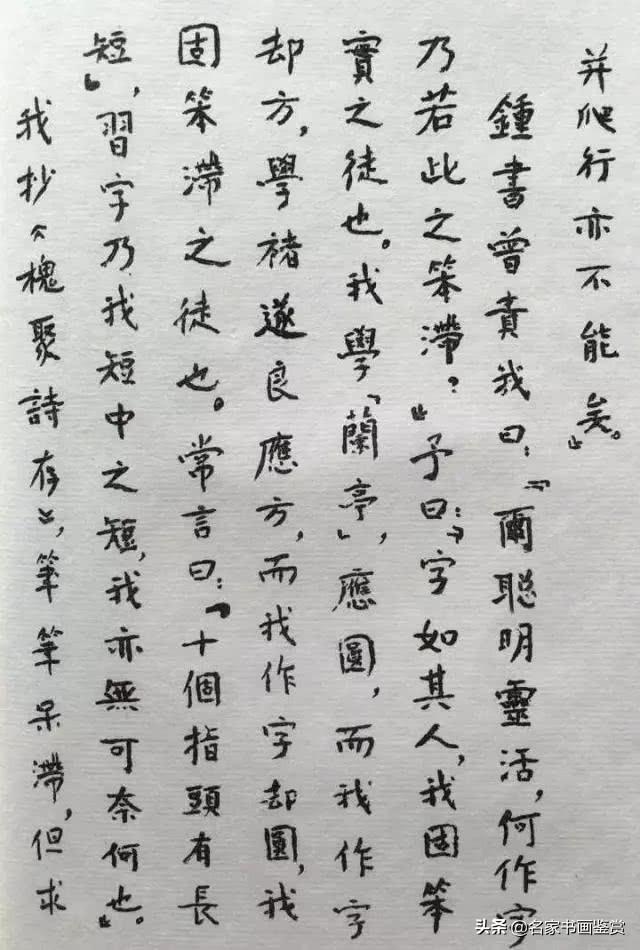 并爬行亦不能矣。」
鍾書曾責我曰：「爾聰明靈活，何作字
乃若此之笨滯？」予曰：「字如其人，我固笨
實之徒也。我學「蘭亭」，應圓，而我作字
却方，學褚遂良應方，而我作字却圓，我
固笨滯之徒也。常言曰：「十個指頭有長
短」，習字乃我短中之短，我亦無可奈何也。」
我抄《槐聚詩存》，筆筆呆滯，但求
头条 @名家书画鉴赏